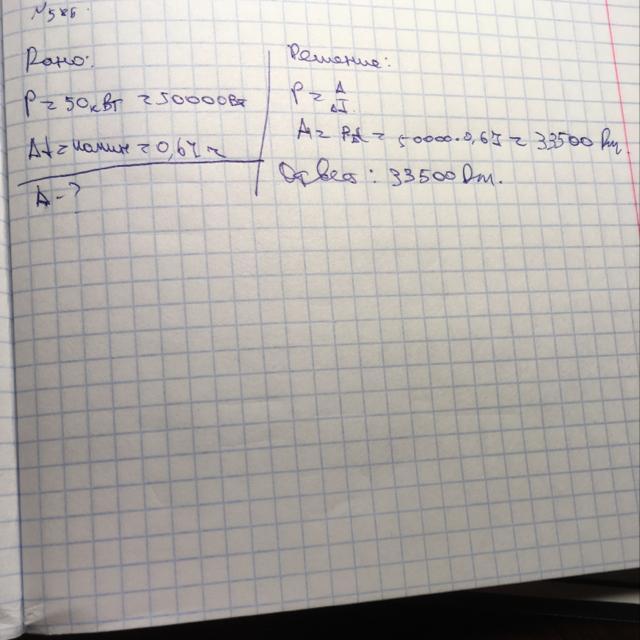 Дано:
P = 50кВт = 50000Вт
Δt = 40мин = 0,67ч
A - ?
Решение:
P = A/Δt
A = PΔt = 50000·0,67 = 33500 Вт.
Ответ: 33500 Вт.